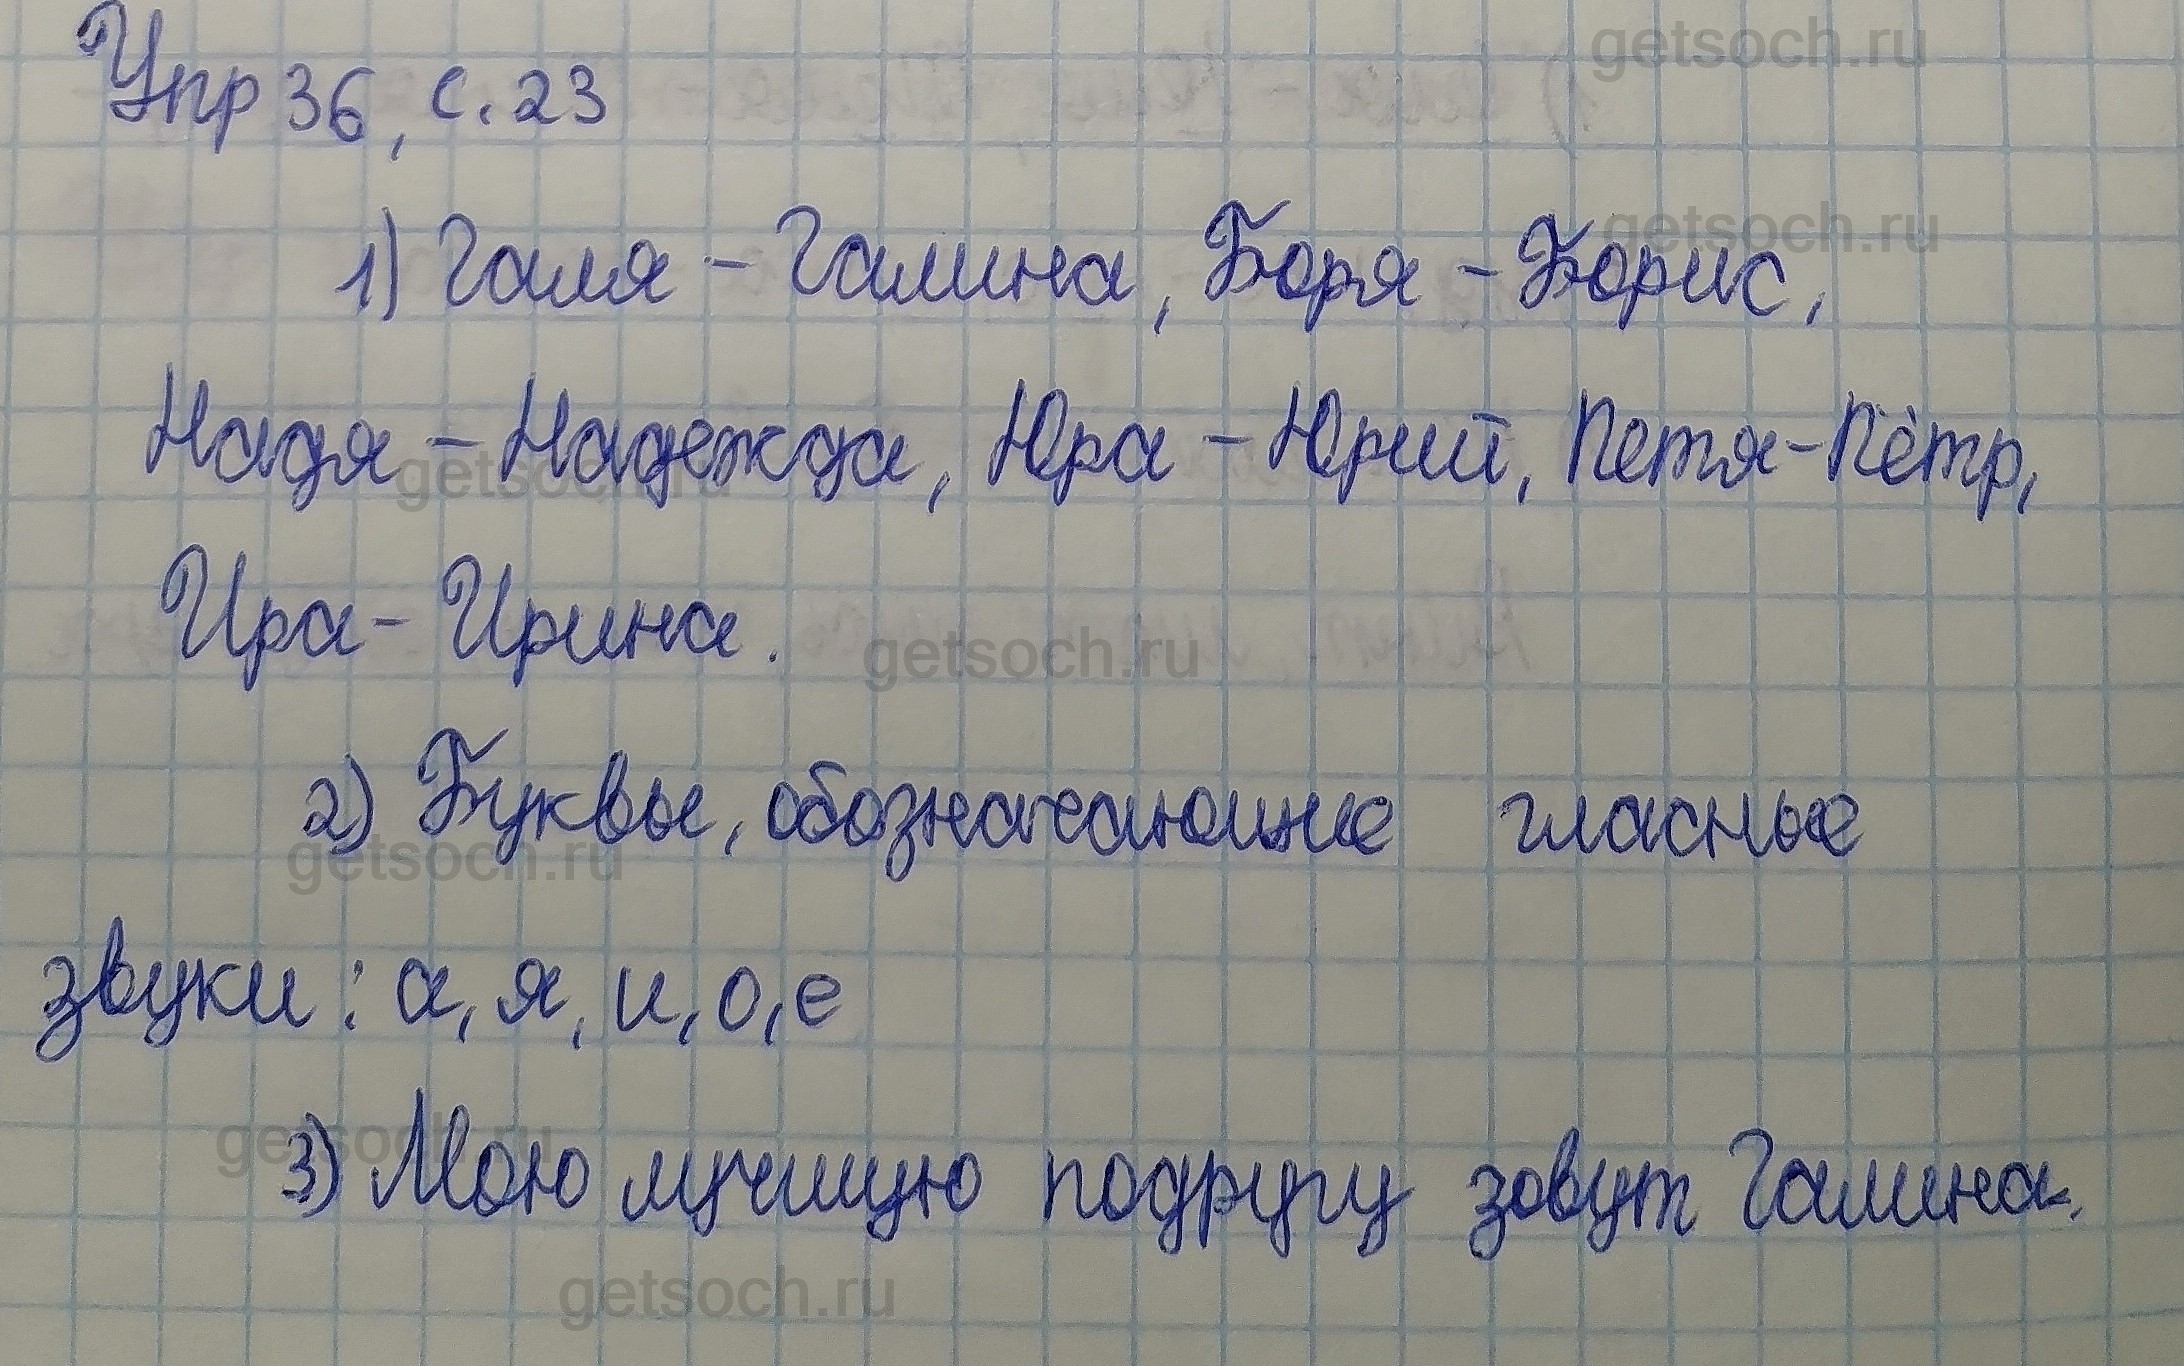 getsoch.ru
Упр 36, с. 23
getsoch.ru
1) Галя - Галина, Боря - Борис,
Надя - Надежда, Юра - Юрий, Петя - Пётр,
getsoch.ru
Ира - Ирина.
getsoch.ru
2) Буквы, обозначающие гласные
getsoch.ru
звуки: а, я, и, о, е
getsoch.ru
3) Мою лучшую подругу зовут Галина.
getsoch.ru